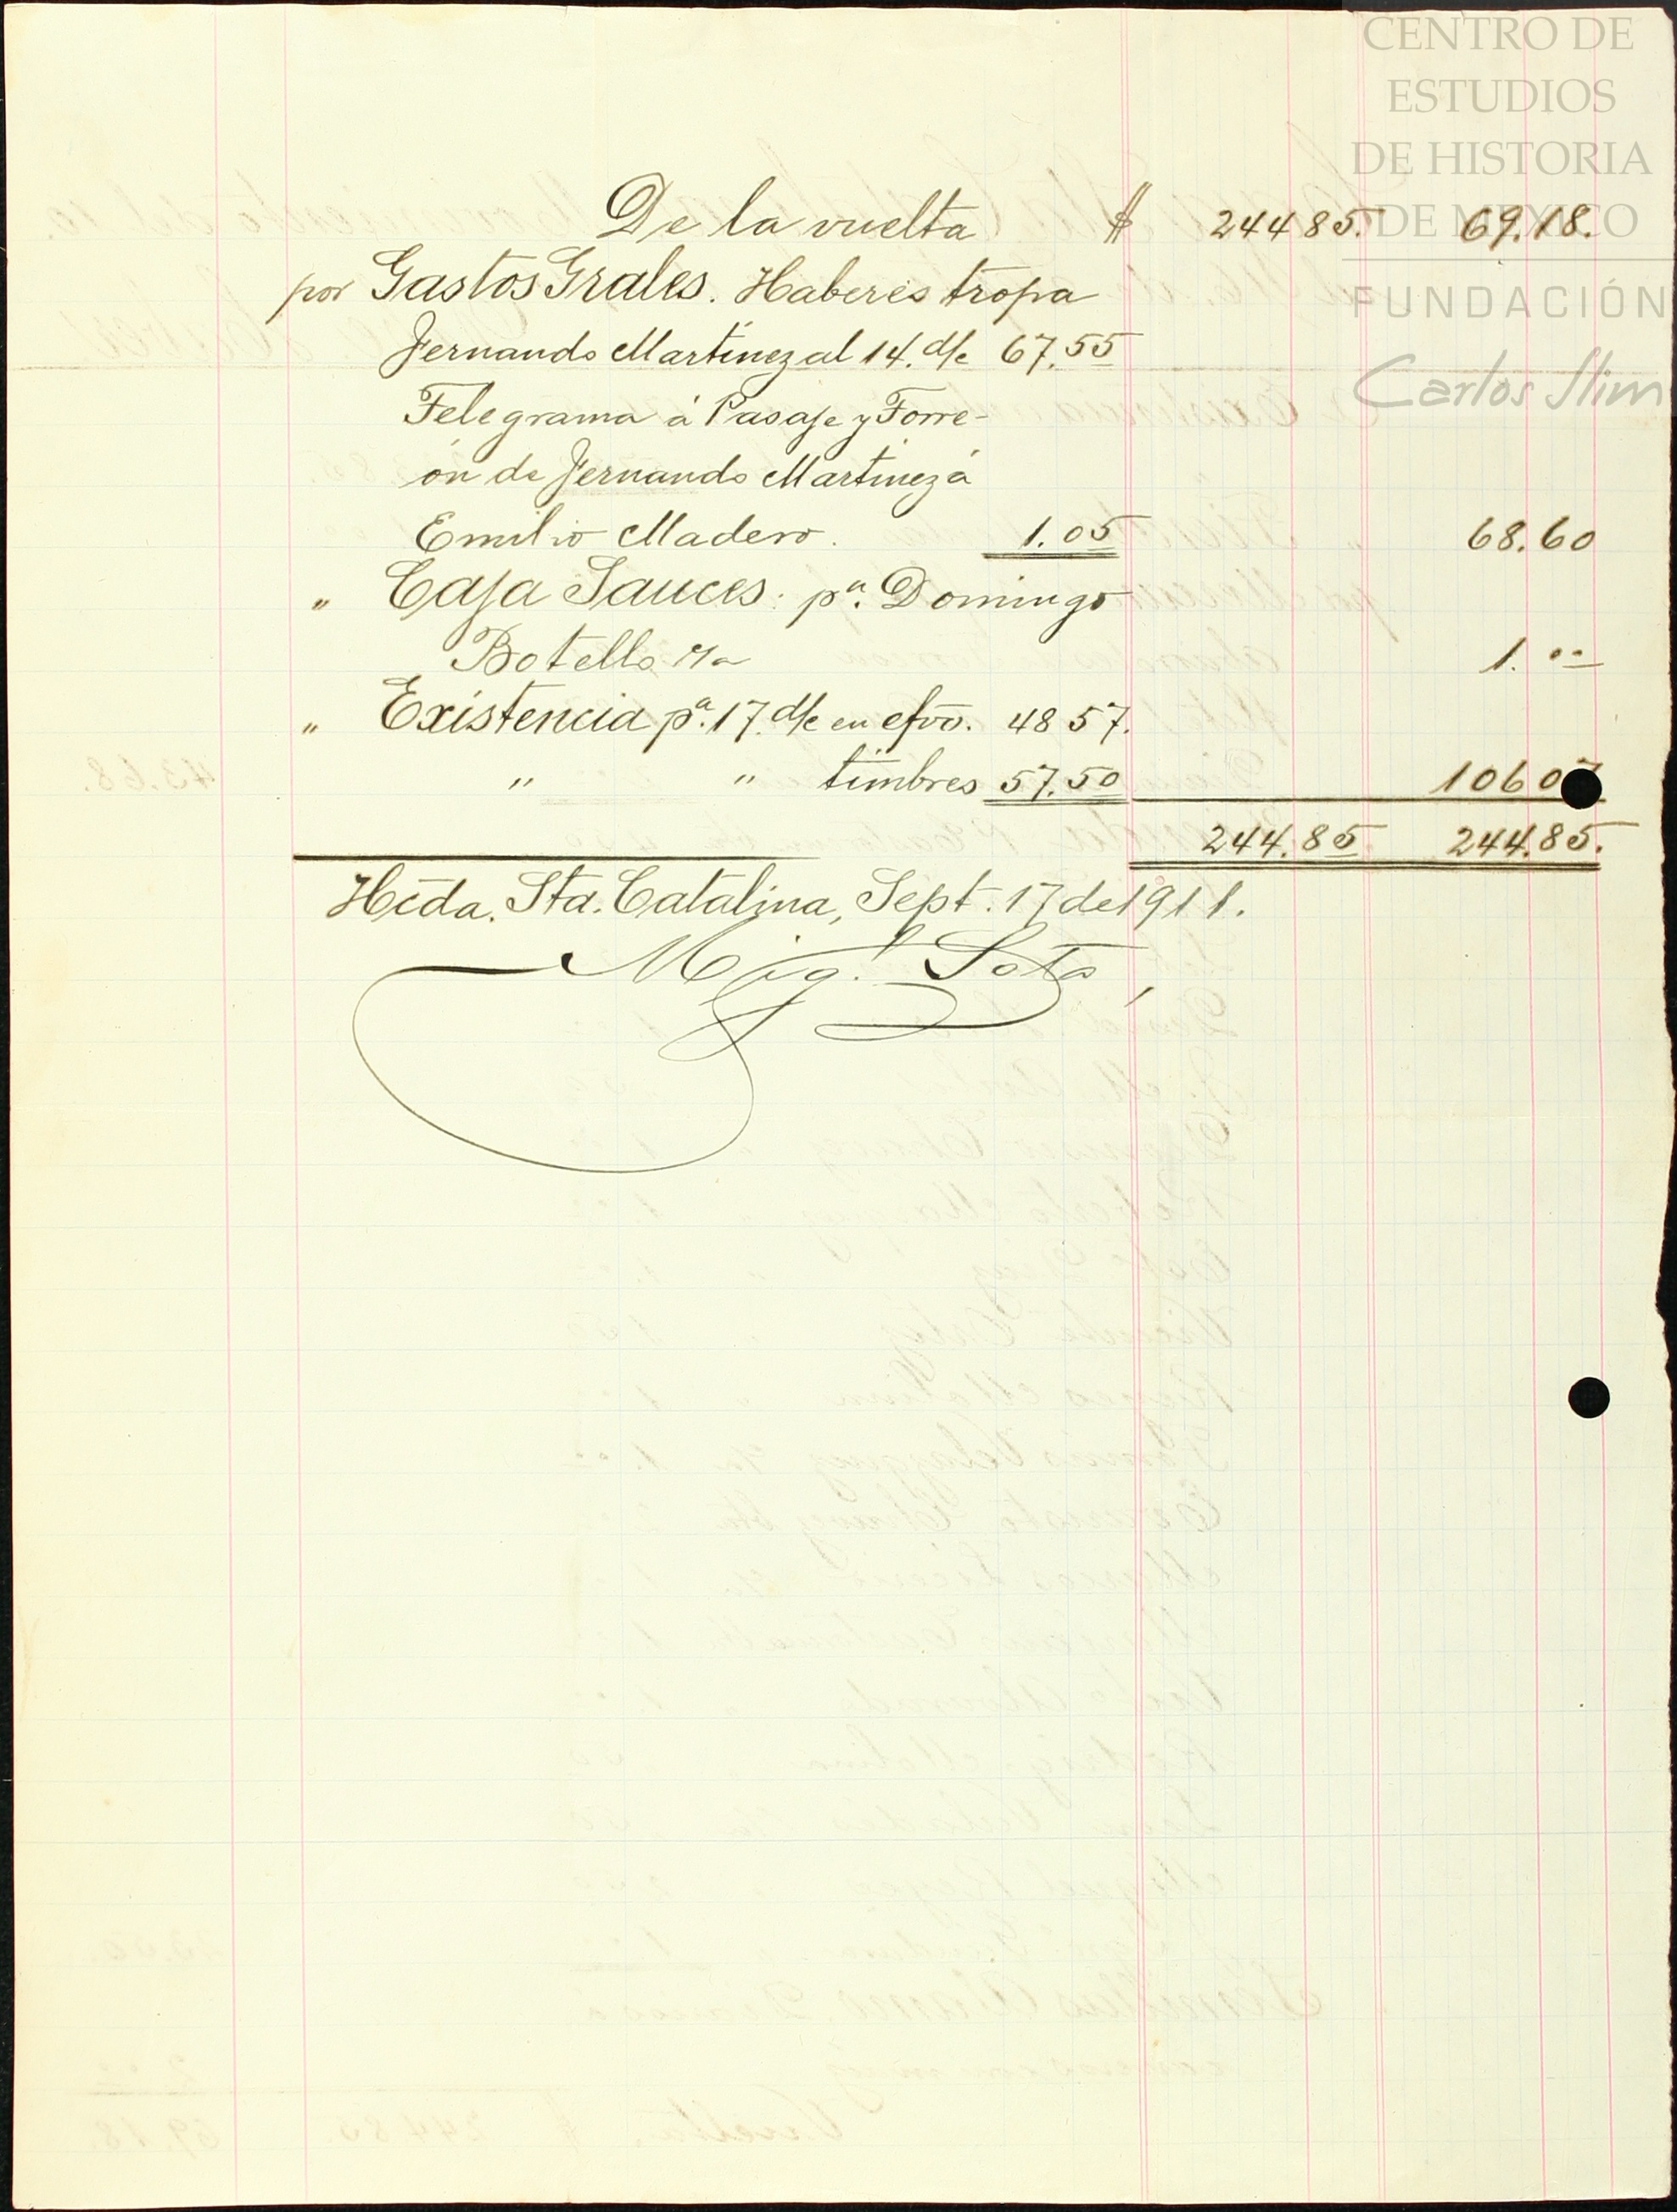 CENTRO DE
ESTUDIOS
DE HISTORIA
DE MÉXICO
FUNDACIÓN
Carlos Slim
De la vuelta $ 244 85. 69.18.
por Gastos Grales. Haberes tropa
Fernando Martinez al 14. d/c 67.55
Telegrama á Pasaje y Torre-
ón de Fernando Martinez á
Emilio Madero. 1.05 68.60
" Caja Sauces: pa. Domingo
Botello 1.00
" Existencia pa. 17. d/c en efvo. 48 57.
" " timbres 57.50 106 07
244.85 244.85.
Hcda. Sta. Catalina, Sept. 17 de 1911.
Mig. Soto